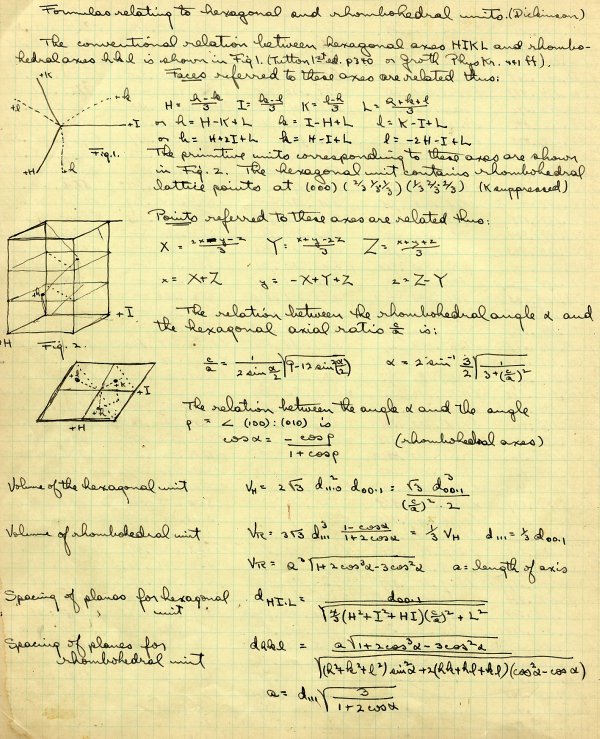 Formulas relating to hexagonal and rhombohedral units. (Dickinson)
The conventional relation between hexagonal axes HIKL and rhombo-
hedral axes hkl is shown in Fig 1. (Tutton 1st ed. p340 or Groth Phys Kr.
Faces referred to these axes are related thus:
H = (h-k)/3 I = (k-l)/3 K = (l-h)/3 L = (h+k+l)/3
or h = H-K+L k = I-H+L l = K-I+L
or h = H+2I+L k = H-I+L l = -2H-I+L
+K
+l
+k
+I
+H
+h
Fig. 1.
The primitive units corresponding to these axes are shown
in Fig. 2. The hexagonal unit contains rhombohedral
lattice points at (000) (2/3 1/3 1/3) (1/3 2/3 2/3) (K suppressed)
Points referred to these axes are related thus:
X = (2x-y-z)/3 Y = (x+y-2z)/3 Z = (x+y+z)/3
x = X+Z y = -X+Y+Z z = Z-Y
+I
+H
Fig. 2.
The relation between the rhombohedral angle α and
the hexagonal axial ratio c/a is:
c/a = 1/(2 sin α/2) √(9-12 sin²(α/2)) α = 2 sin⁻¹ 3/2 √(1/(3+(c/a)²))
+I
+H
The relation between the angle α and the angle
ρ = ∠ (100):(010) is
cos α = -cos ρ/(1+cos ρ) (rhombohedral axes)
Volume of the hexagonal unit V_H = 2√3 d²₁₁.₀ d₀₀.₁ = √3 d³₀₀.₁/((c/a)²·2)
Volume of rhombohedral unit V_R = 3√3 d³₁₁₁ (1-cos α)/(1+2cos α) = 1/3 V_H d₁₁₁ = 1/3 d₀₀.₁
V_R = a³√(1+2cos³α-3cos²α) a = length of axis
Spacing of planes for hexagonal unit d_HI.L = d₀₀.₁/√(4/3(H²+I²+HI)(c/a)²+L²)
Spacing of planes for rhombohedral unit d_hkl = a√(1+2cos³α-3cos²α)/√((h²+k²+l²)sin²α+2(hk+hl+kl)(cos²α-cos α))
a = d₁₁₁√(3/(1+2cos α))